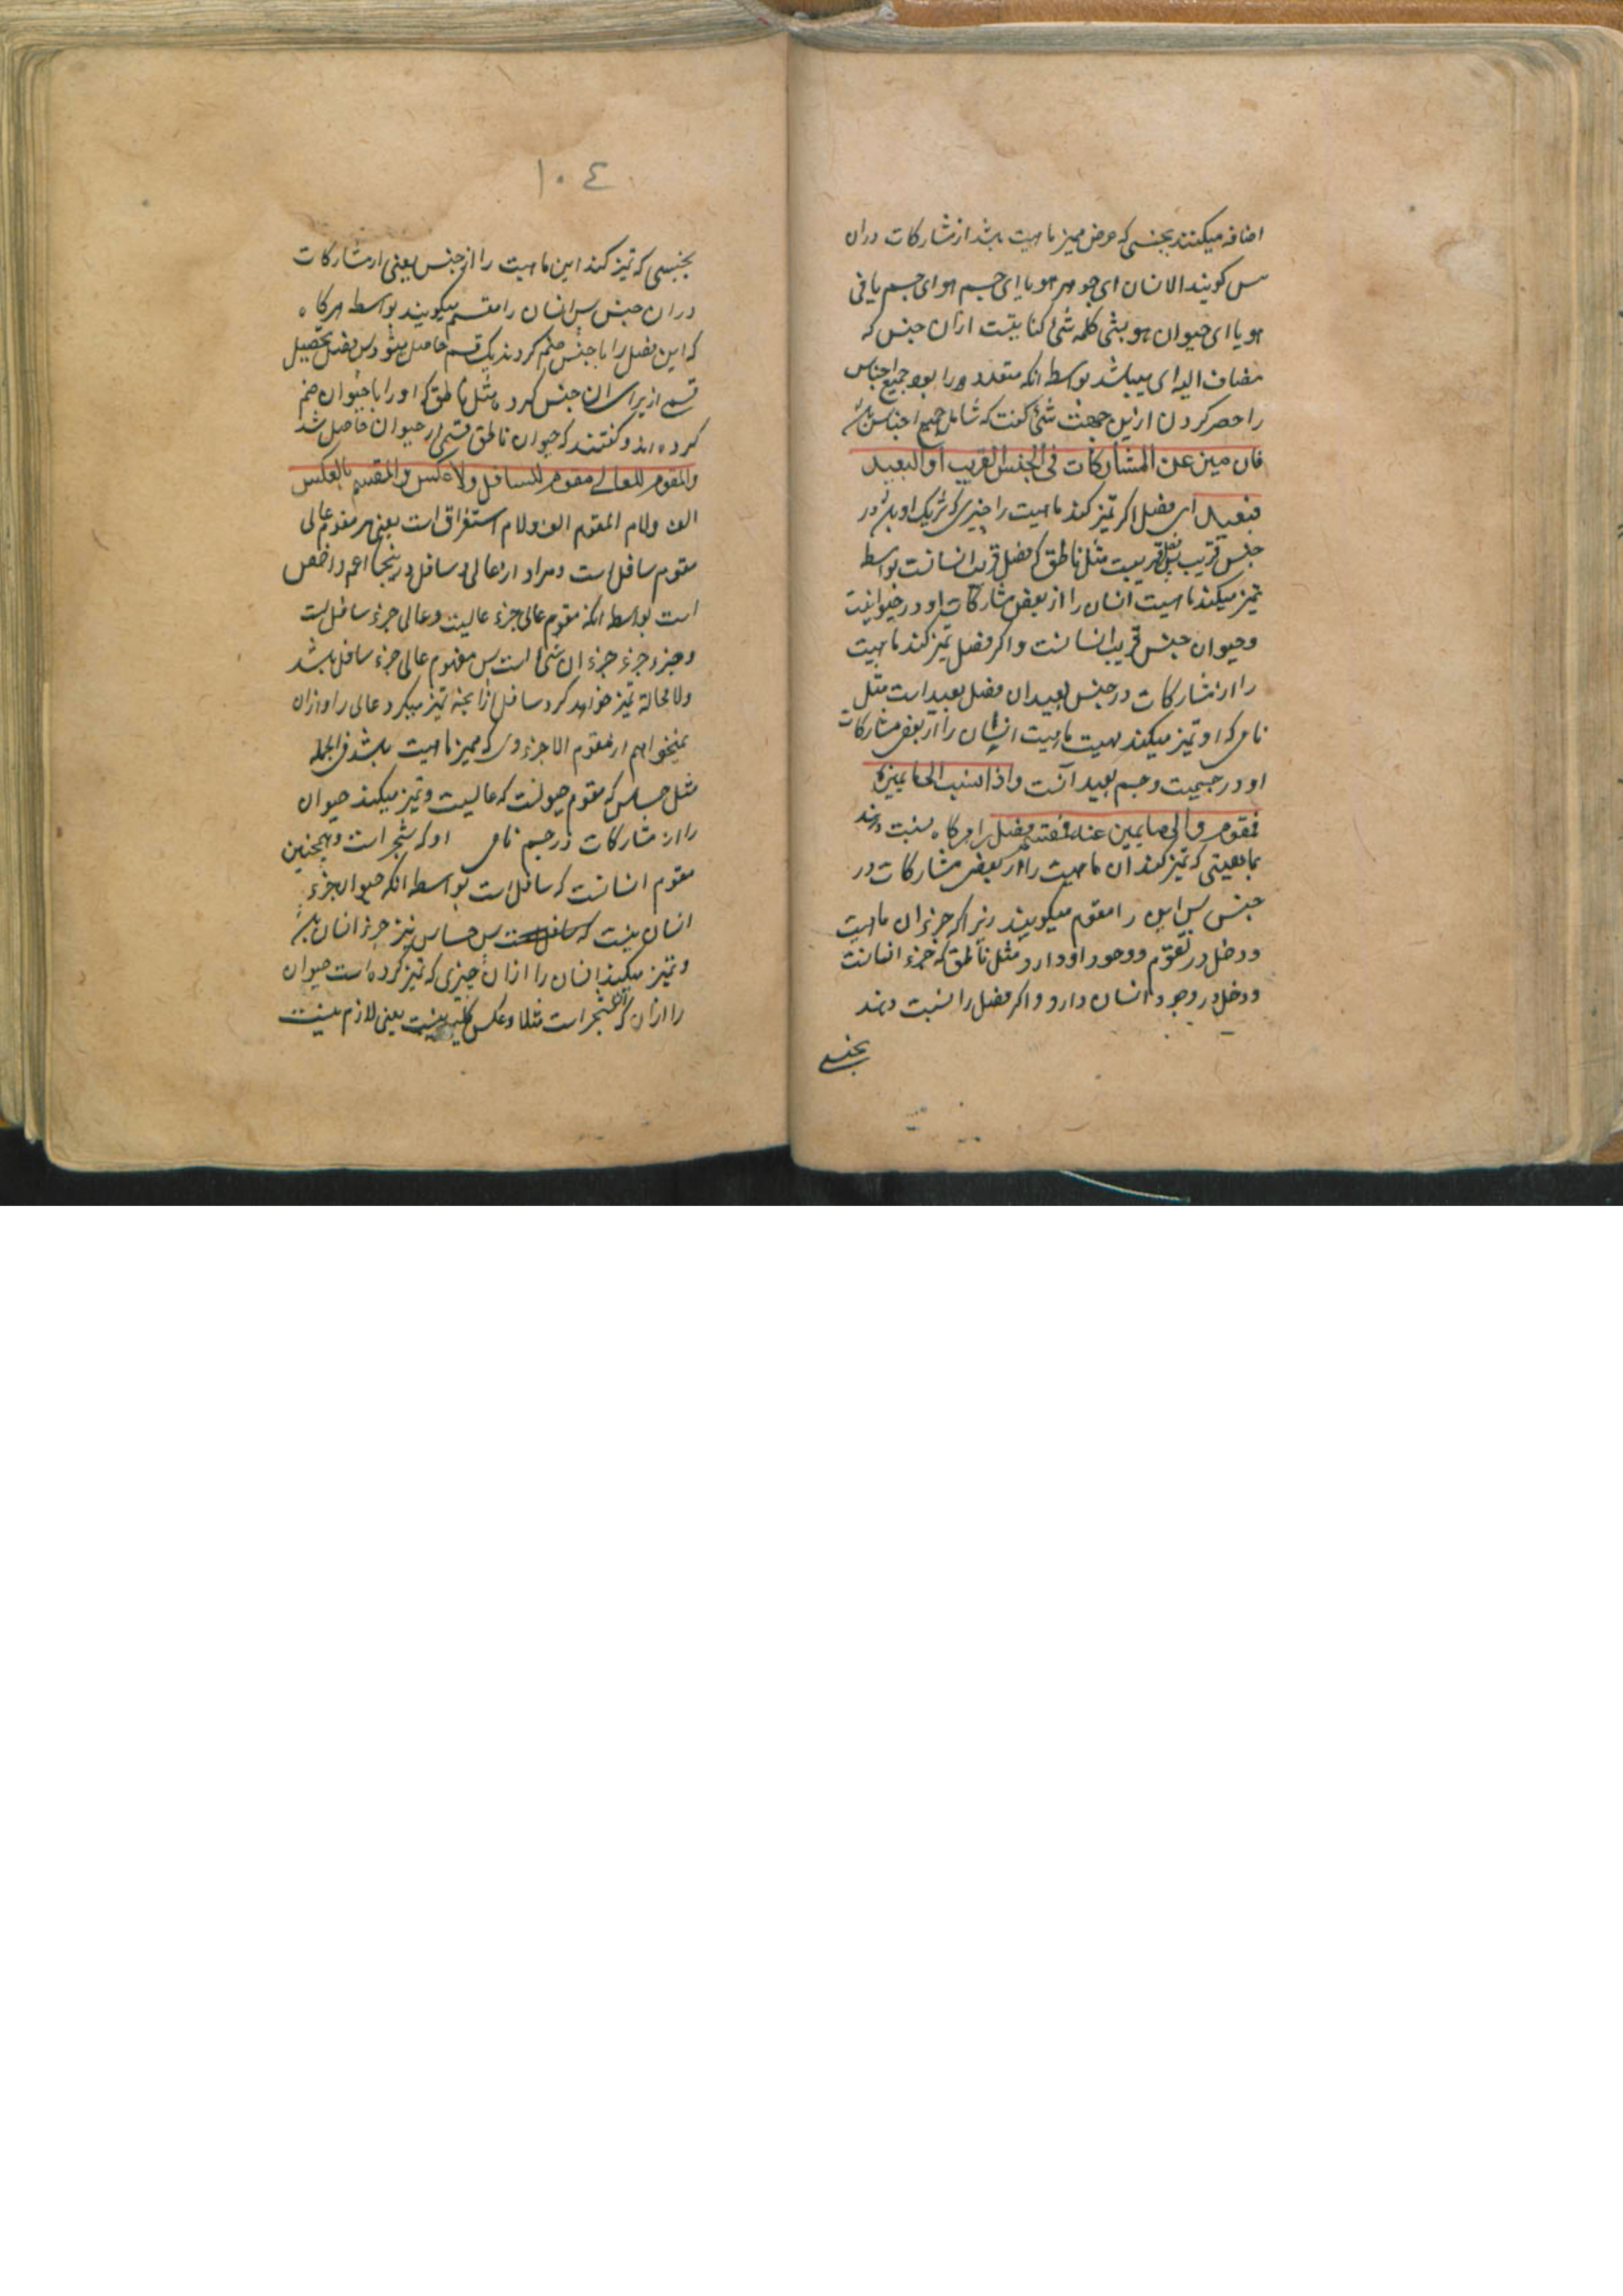 اضافه میکنند بجنسی که عرض ممیز ماهیت باشد از مشارکات دران
پس کویند الانسان ای جوهر هو یا ای جسم هو ای جسم نامی
هو یا ای حیوان هو بشی کلمه شئ کنایتست ازان جنس که
مضاف الیه ای میباشد بواسطه انکه متعدد بود جمیع اجناس
را حصر کردن ازین جهت شئ کفت که شامل جمیع اجناس باشد
فان میز عن المشارکات فی الجنس القریب او البعید
فبعید ای فصل اکر تمیز کند ماهیت را چیزی که شریک او باشد در
جنس قریب فصل قریبست مثل ناطق که فصل قریب انسانست بواسطه
تمیز میکند ماهیت انسان را از بعض مشارکات او در حیوانیت
و حیوان جنس قریب انسانست و اکر فصل تمیز کند ماهیت
را از مشارکات در جنس بعید ان فصل بعید است مثل
نامی که او تمیز میکند ماهیت انسان را از بعض مشارکات
او در جسمیت و جسم بعید آنست واذا نسب الی ما یمیزه
فمقوم والی ما یمیز عنه فمقسم فصل را هرکاه نسبت دهند
بماهیتی که تمیز کند ان ماهیت را از بعض مشارکات در
جنس پس این را مقوم میکویند زیرا که جزء ان ماهیت
و دخل در تقوم و وجود او دارد مثل ناطق که جزء انسانست
و دخل در وجود انسان دارد و اکر فصل را نسبت دهند
بجنسی
١٠٤
بجنسی که تمیز کند این ماهیت را از جنس یعنی از مشارکات
دران جنس پس انسان را مقسم میکویند بواسطه هرکاه
که این فصل را با جنس ضم کردند یک قسم حاصل میشود پس فصل تحصیل
قسمی از برای ان جنس کرد مثل ناطق که او را با حیوان ضم
کرده اند و کفتند که حیوان ناطق قسمی از حیوان حاصل شد
والمقوم للعالی مقوم للسافل ولا عکس والمقسم بالعکس
الف ولام المقوم الف ولام استغراق است یعنی هر مقوم عالی
مقوم سافل است و مراد از عالی و سافل درینجا اعم و اخص
است بواسطه انکه مقوم عالی جزء عالیست و عالی جزء سافل است
و جزء جزء ان شئ است پس مقوم عالی جزء سافل باشد
و لا محالة تمیز خواهد کرد سافل را ازانچه تمیز میکرد عالی را ازان
نمیخواهم از مقوم الا جزءوی که ممیز ماهیت باشد فی الجمله
مثل حساس که مقوم حیوانست که عالیست و تمیز میکند حیوان
را از مشارکات در جسم نامی او که شجر است و همچنین
مقوم انسانست که سافل است بواسطه انکه حیوان جزء
انسان نیست که پس حساس نیز جزء انسان باشد
و تمیز میکند انسان را ازان چیزی که تمیز کرده است حیوان
را ازان که ان شجر است مثلا و عکس کلیه نیست یعنی لازم نیست